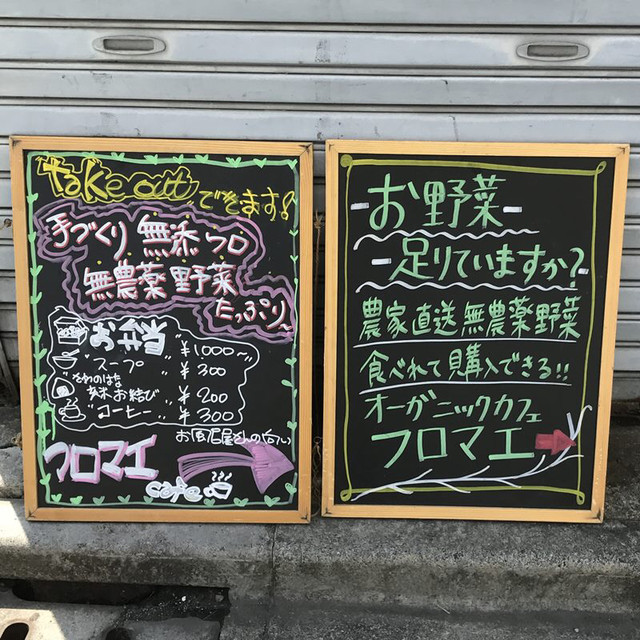 take out できます!
手づくり 無添加
無農薬 野菜
たっぷり
お弁当 ¥1000〜
スープ ¥300
お結び ¥200
コーヒー ¥300
お風呂屋さんの向い
フロマエ
cafe
お野菜
足りていますか?
農家直送 無農薬野菜
食べれて購入できる!!
オーガニックカフェ
フロマエ